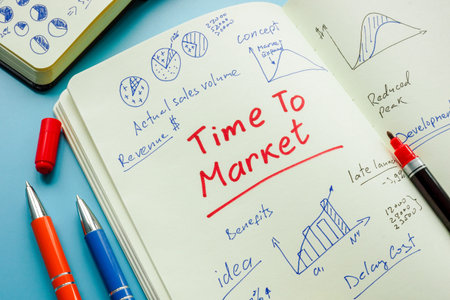 concept
Market
expansion
Actual sales volume
Revenue $
Time To
Market
Reduced
peak
Development
late launch
Benefits
idea
Delay Cost